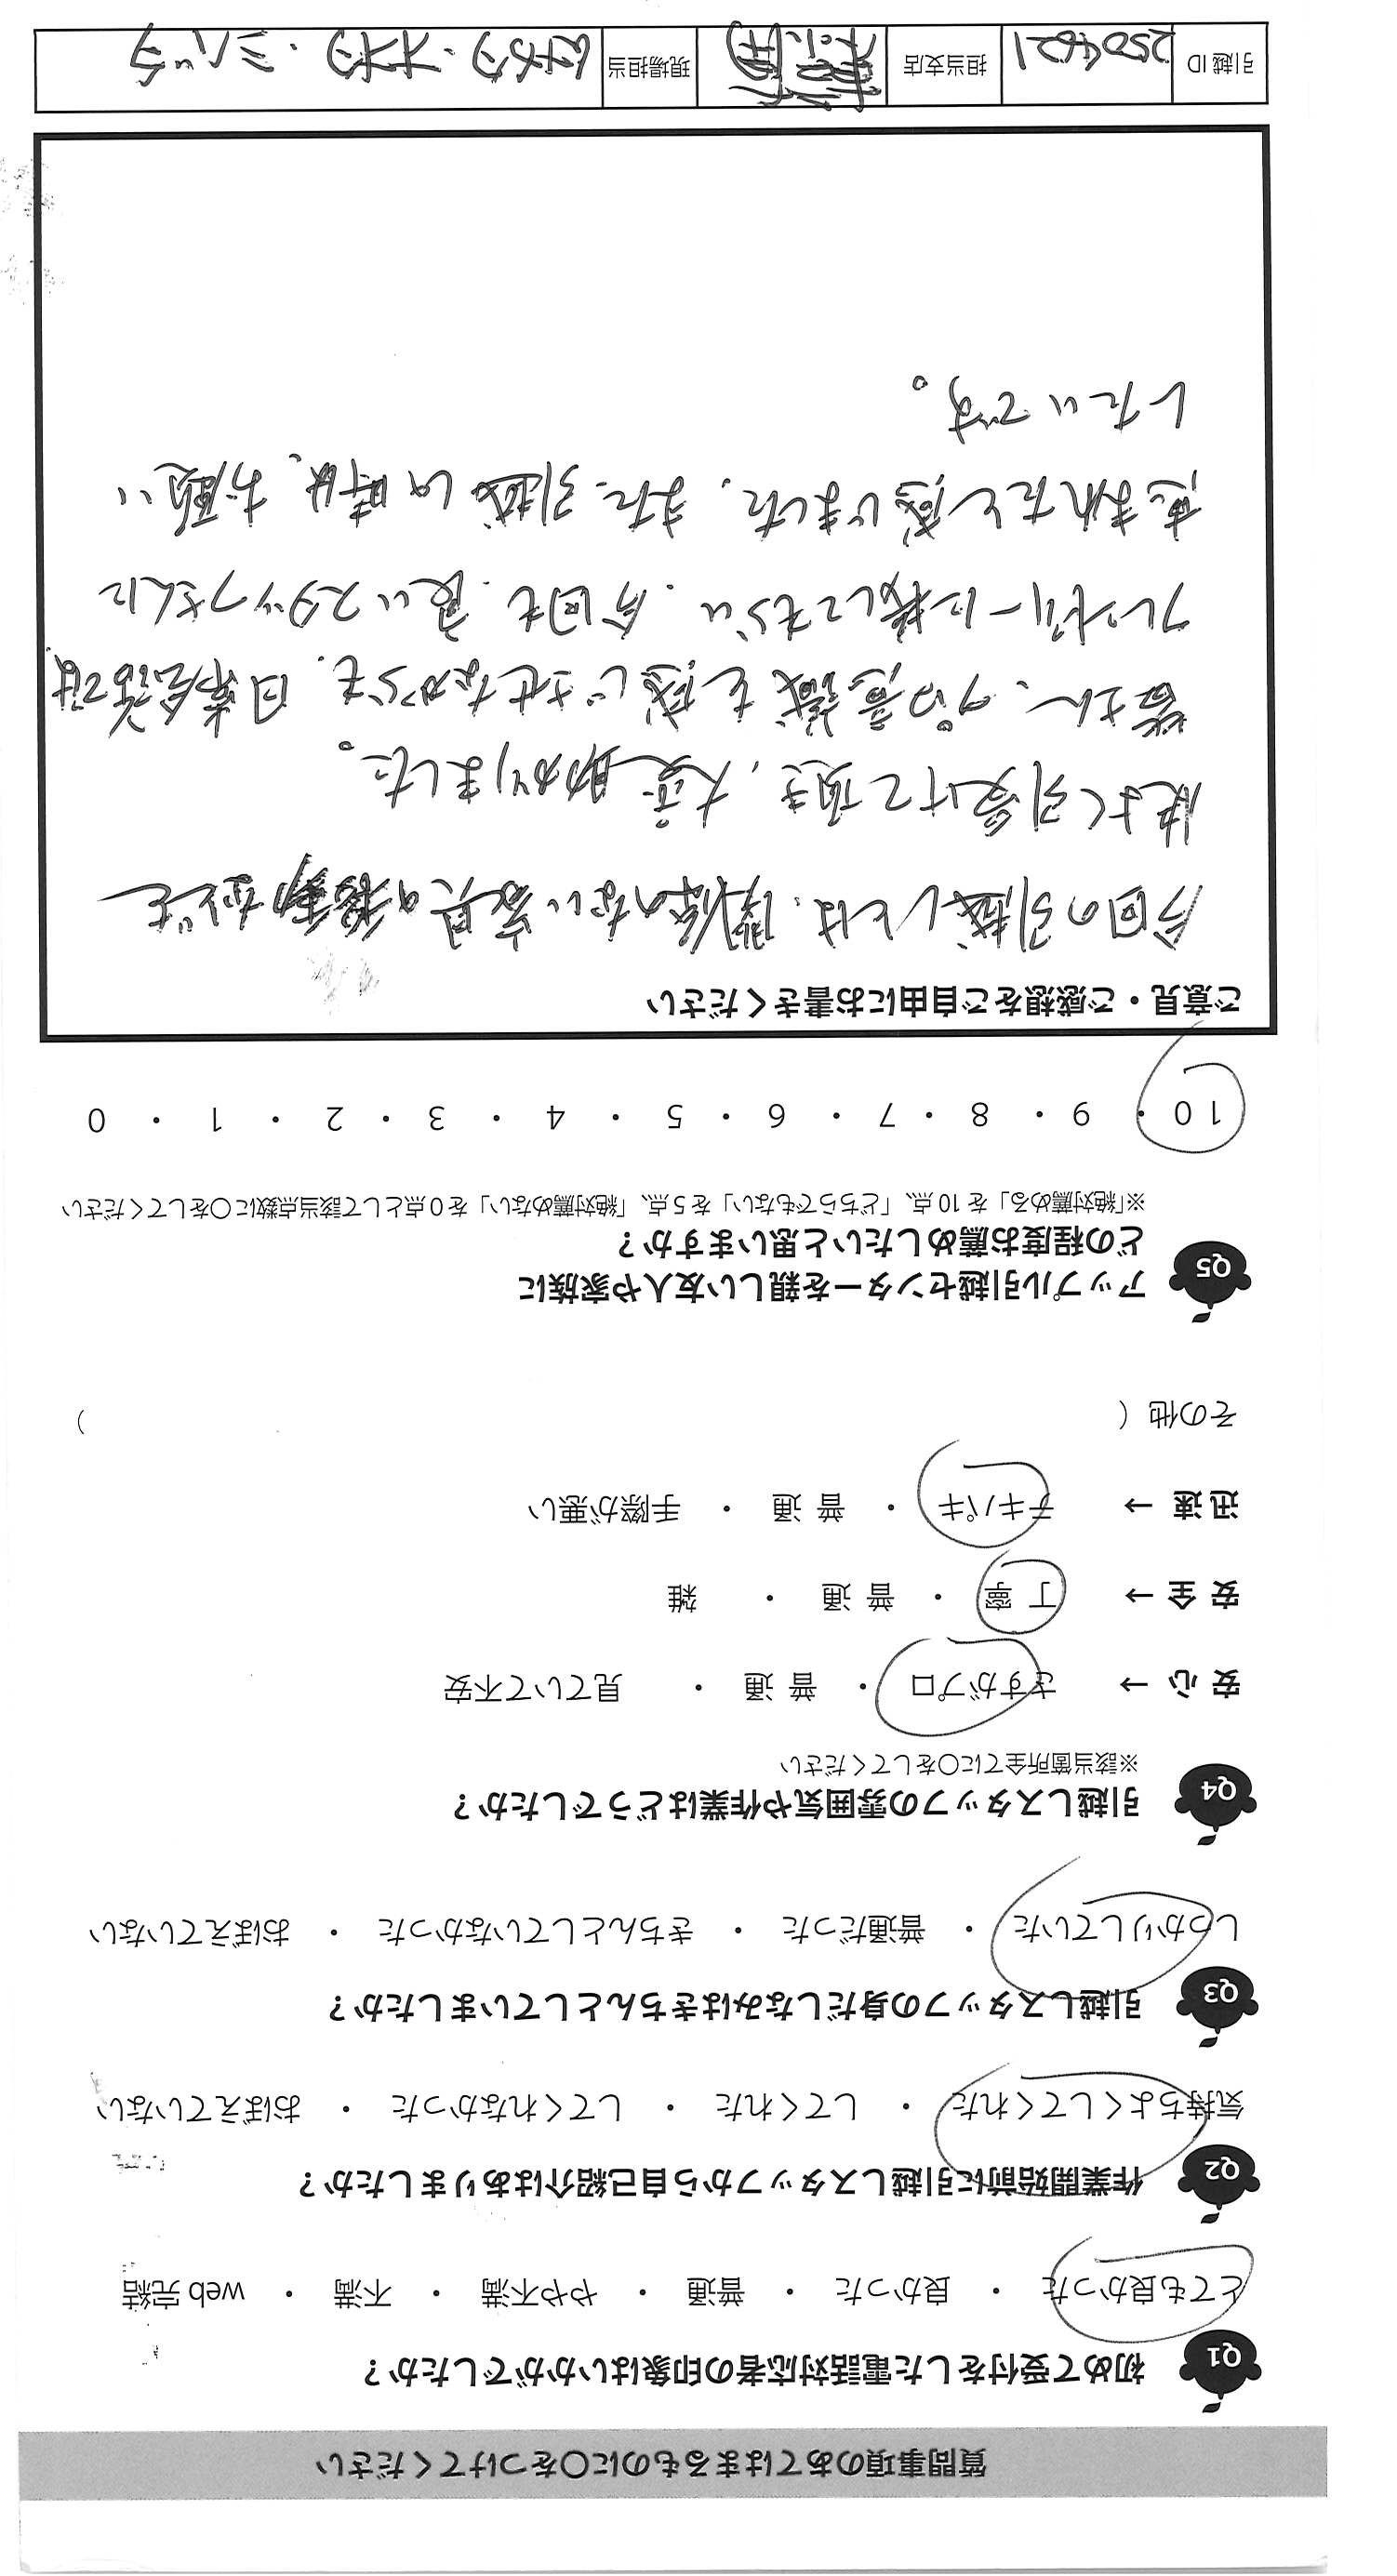 質問事項のあてはまるものに○をつけてください
Q1 初めて受付をした電話対応者の印象はいかがでしたか？
とても良かった ・ 良かった ・ 普通 ・ やや不満 ・ 不満 ・ web 完結
Q2 作業開始前に引越しスタッフから自己紹介はありましたか？
気持ちよくしてくれた ・ してくれた ・ してくれなかった ・ おぼえていない
Q3 引越しスタッフの身だしなみはきちんとしていましたか？
しっかりしていた ・ 普通だった ・ きちんとしていなかった ・ おぼえていない
Q4 引越しスタッフの雰囲気や作業はどうでしたか？
※該当箇所全てに○をしてください
安 心 → さすがプロ ・ 普 通 ・ 見ていて不安
安 全 → 丁 寧 ・ 普 通 ・ 雑
迅 速 → テキパキ ・ 普 通 ・ 手際が悪い
その他（ ）
Q5 アップル引越センターを親しい友人や家族に
どの程度お薦めしたいと思いますか？
※「絶対薦める」を 10 点、「どちらでもない」を 5 点、「絶対薦めない」を 0 点として該当点数に○をしてください
10 ・ 9 ・ 8 ・ 7 ・ 6 ・ 5 ・ 4 ・ 3 ・ 2 ・ 1 ・ 0
ご意見・ご感想をご自由にお書きください
今回の引越しとは、関係のない家具の移動なども
快よく引受けて頂き、大変助かりました。
皆さん、プロ意識を感じさせながらも、日常会話では、
フレンドリーに接してもらい、今回も、良いスタッフさんに
恵まれたと感じました。また、引越しの時は、お願い
したいです。
引越 ID 2504621 担当支店 現場担当 ・オオタ・ミバラ